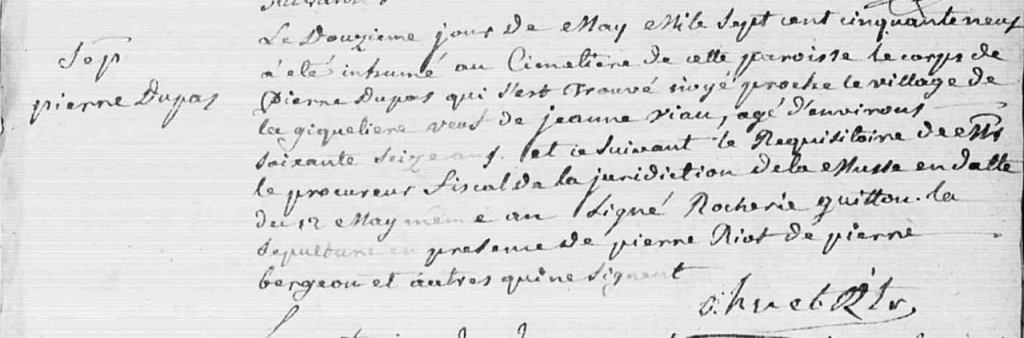 Sep
pierre Dupas
Le Douzieme jour de May Mile Sept cent cinquante neuf
á eté inhumé au Cimetiere de cette paroisse le corps de
pierre Dupas qui s'est trouvé noyé proche le village de
la giqueliere veuf de jeanne viau, agé d'environs
soixante seize ans. et ce suivant le Requisitoire de Mr
le procureur fiscal de la juridiction de la Musse en datte
du 12 May meme an Signé Rocherie guitton. la
sepulture en presence de pierre Riot de pierre
bergeon et autres qui ne signent
huet